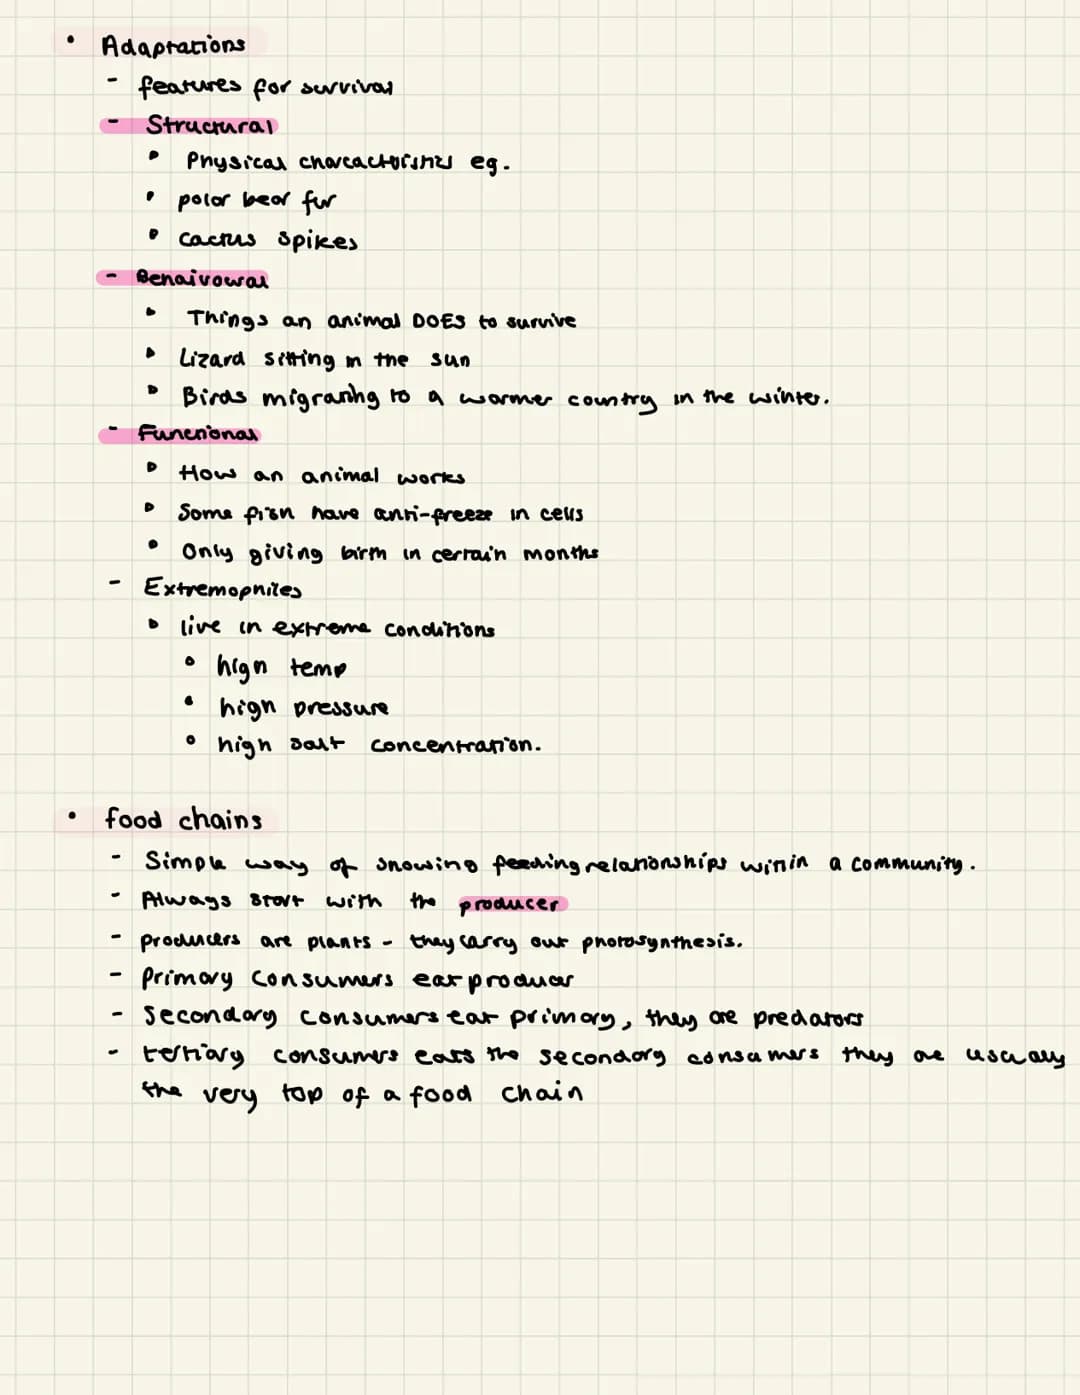 • Adaptations
- features for survival
- Structural
• Physical characteristics eg.
• polar bear fur
• cactus spikes
- Behaivoural
• Things an animal DOES to survive
• Lizard sitting in the sun
• Birds migrating to a warmer country in the winter.
- Functional
• How an animal works
• Some fish have anti-freeze in cells
• Only giving birth in certain months
- Extremophiles
• live in extreme conditions
• high temp
• high pressure
• high salt concentration.
• food chains
- Simple way of showing feeding relationships within a community.
- Always start with the producer
- producers are plants - they carry out photosynthesis.
- Primary Consumers eat producer
- Secondary consumers eat primary, they are predators
- tertiary consumers eats the secondary consumers they are usually
the very top of a food chain